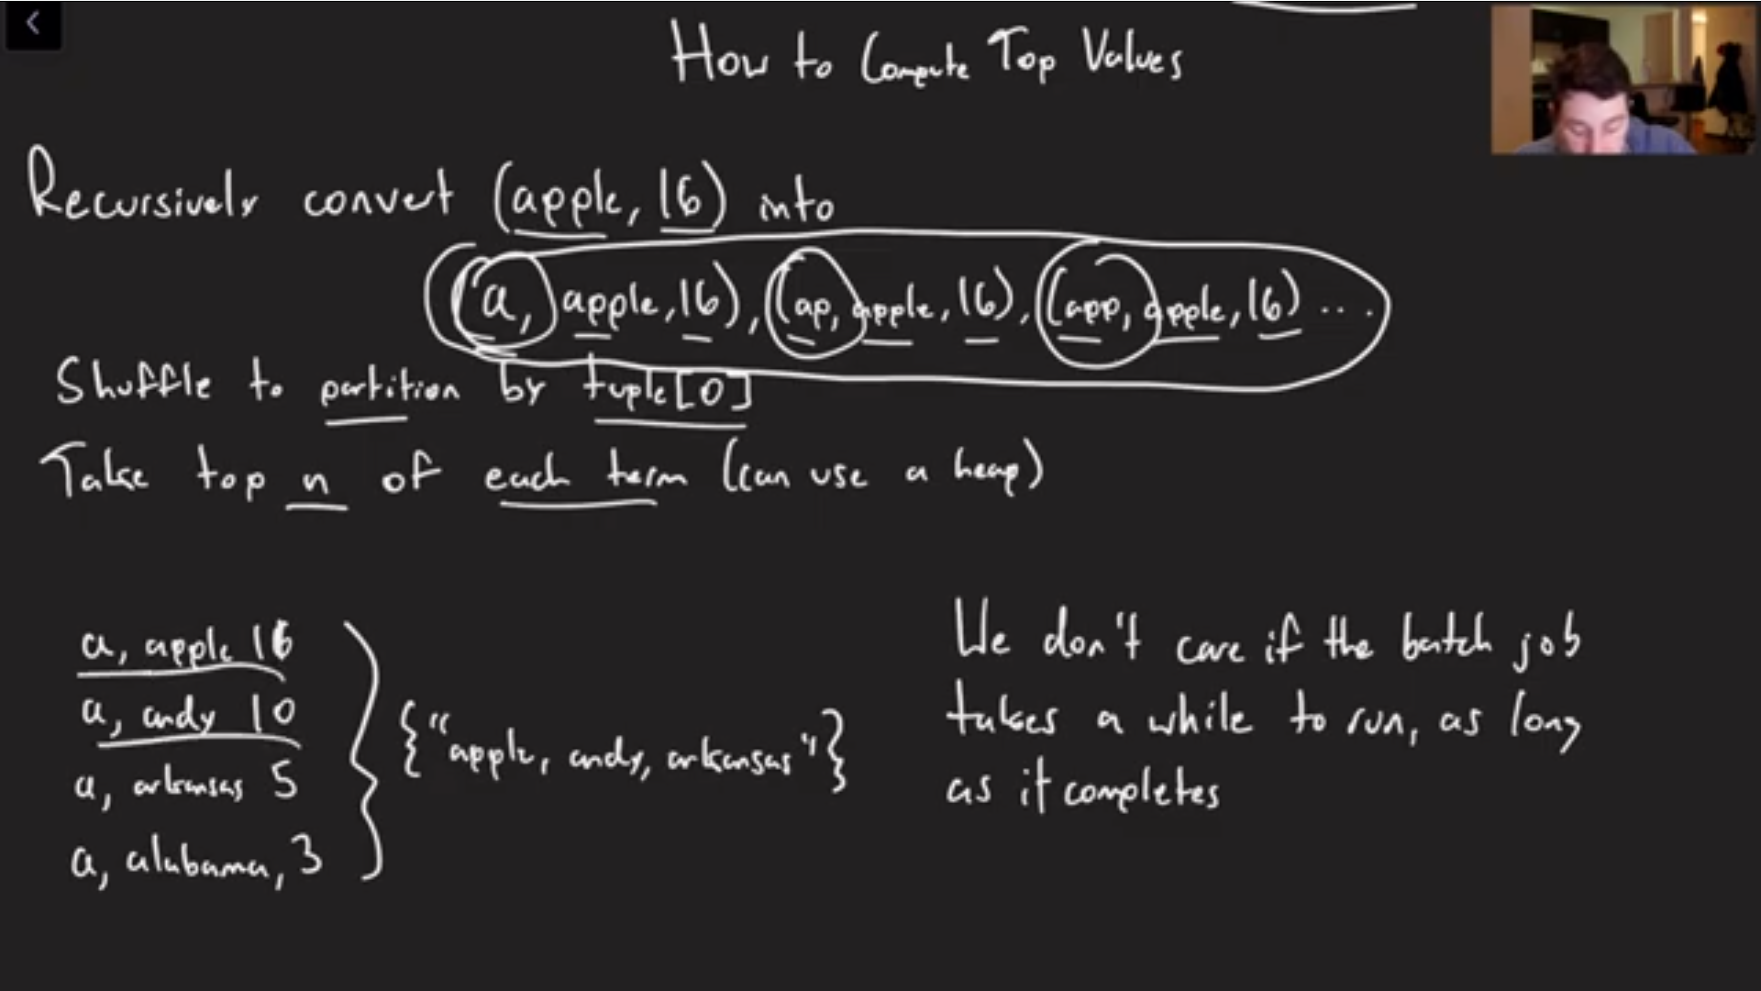 How to Compute Top Values
Recursively convert (apple, 16) into
(a, apple, 16), (ap, apple, 16), (app, apple, 16) ...
Shuffle to partition by tuple[0]
Take top n of each term (can use a heap)
a, apple 16
a, andy 10
a, arkansas 5
a, alabama, 3
{"apple, andy, arkansas"}
We don't care if the batch job
takes a while to run, as long
as it completes